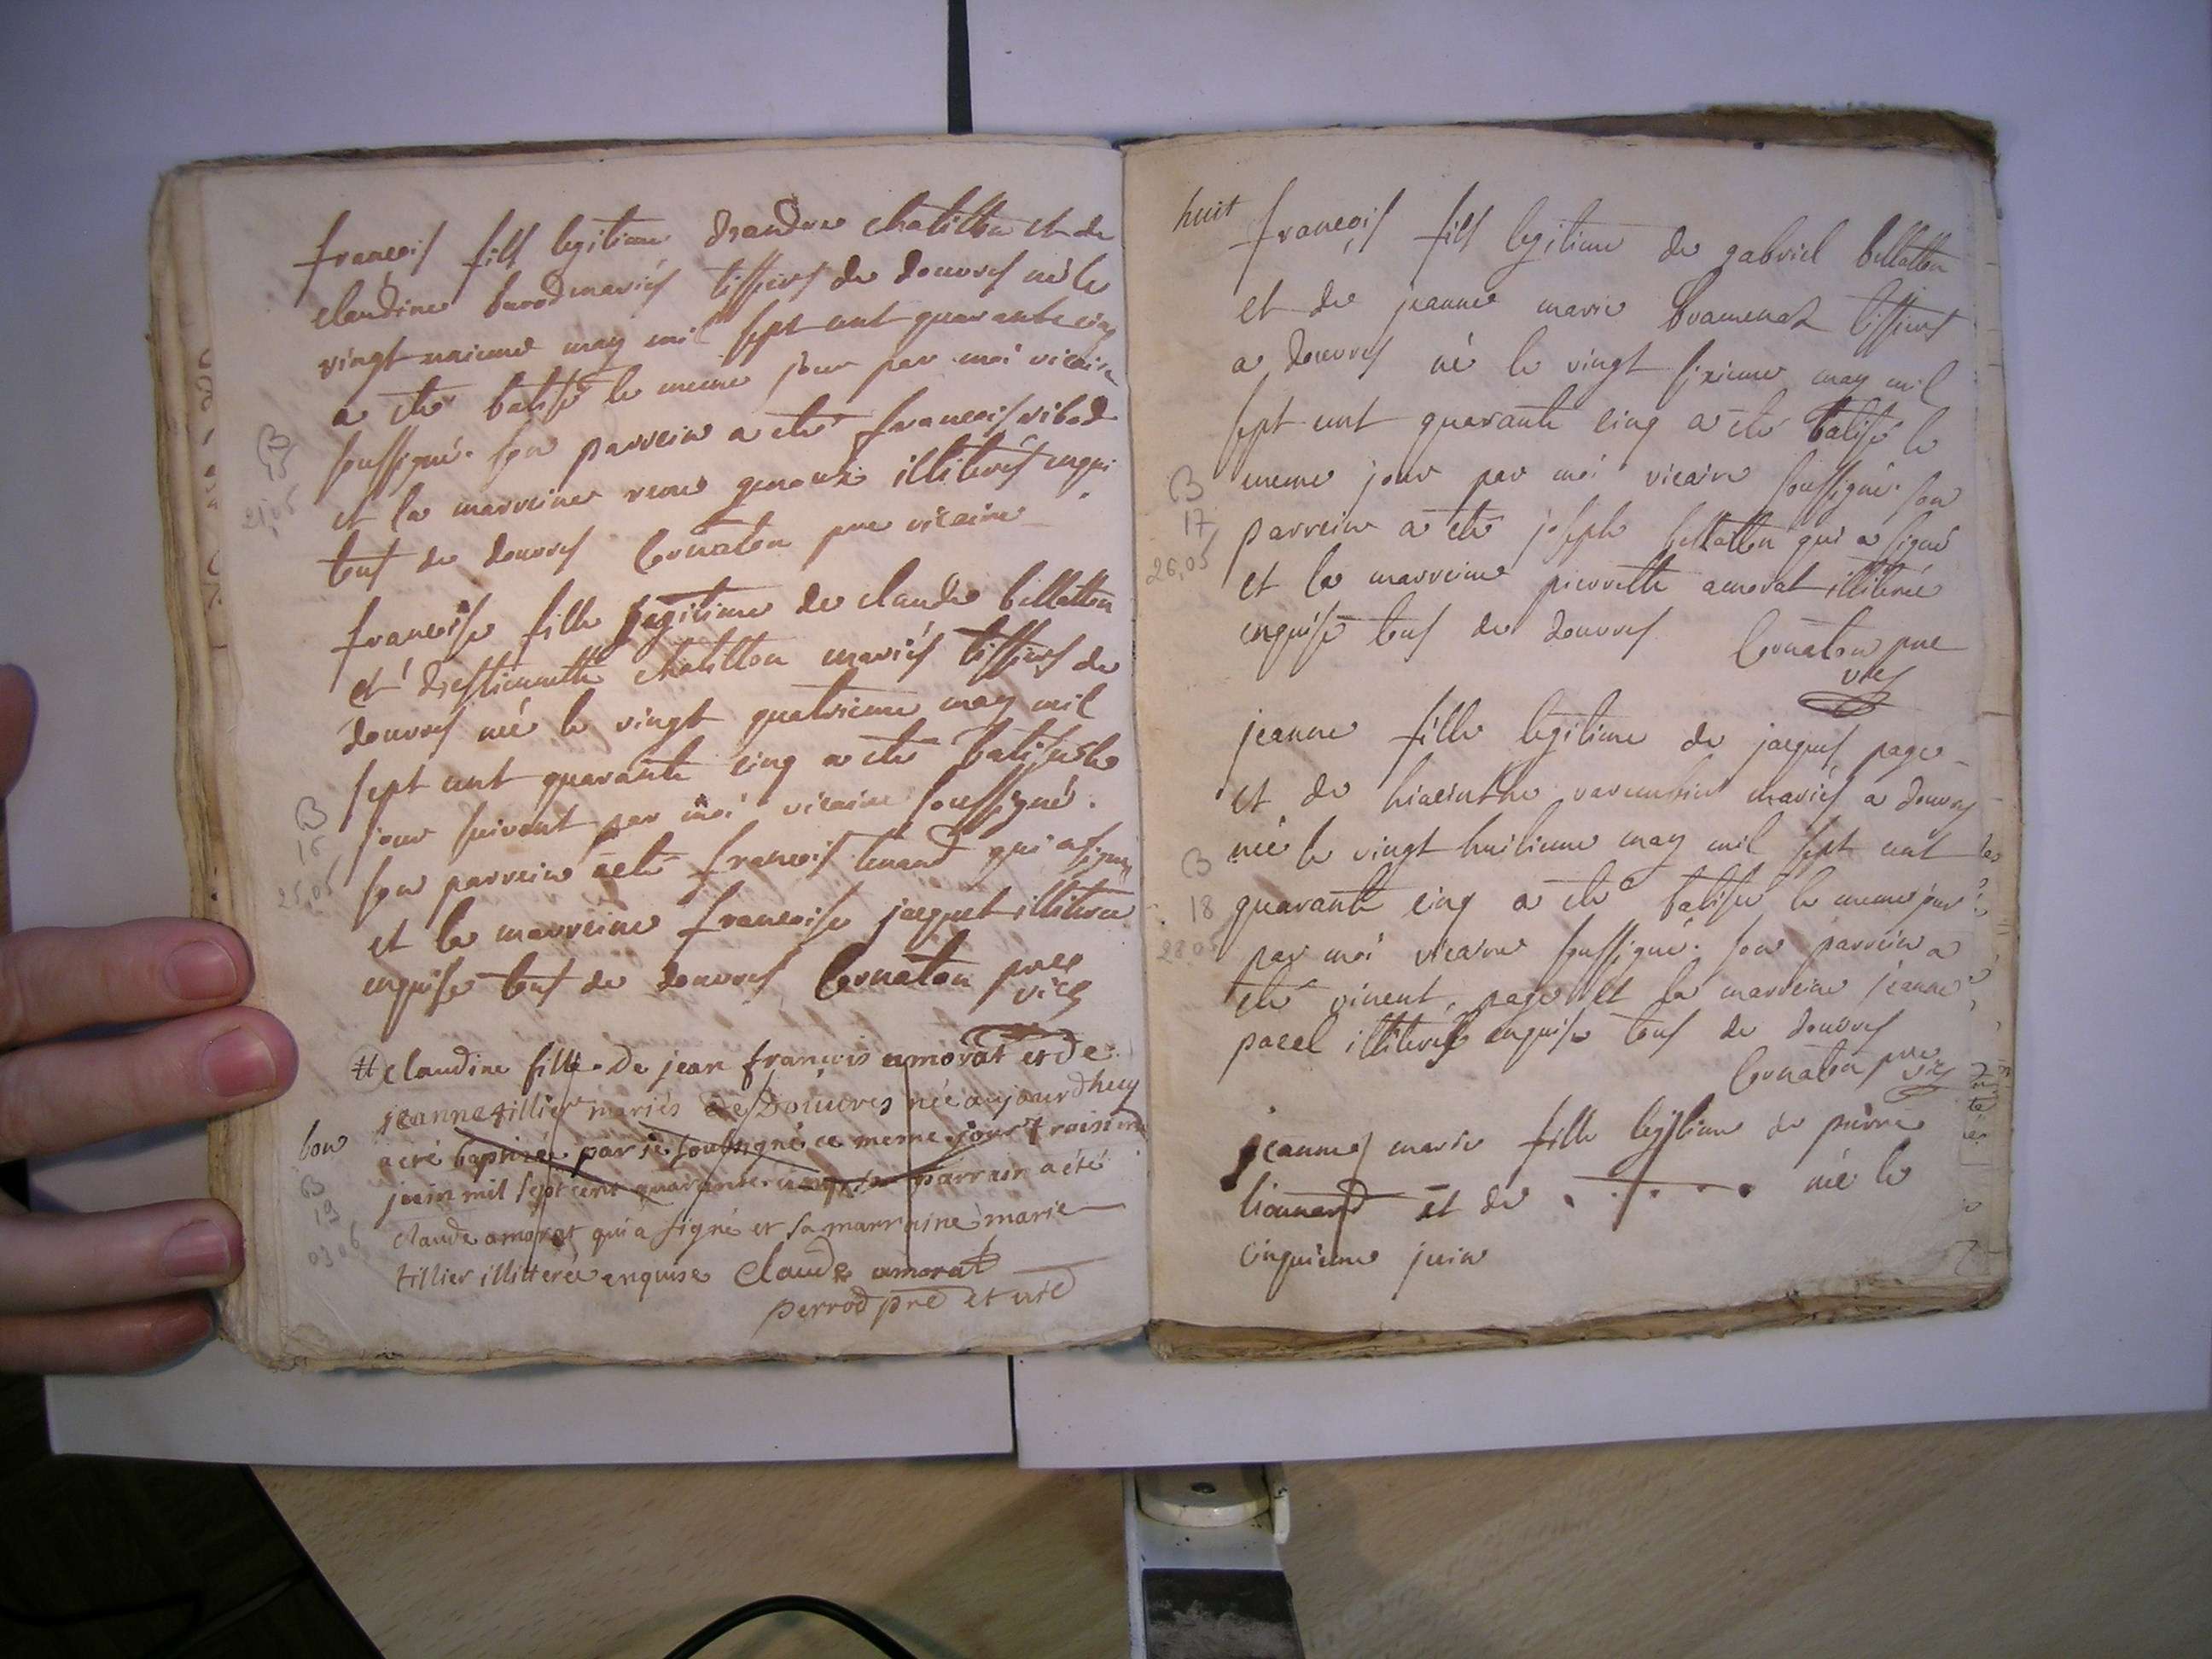 francois fils legitime dandre chatillon et de
claudine burod mariés tissiers de douvres né le
vingt unieme may mil sept cent quarante cinq
a eté batisé le meme jour par moi vicaire
soussigné. son parrein a eté francois ribod
et la marreine illiterés enqui
tous de douvres Cornaton pre vicaire
B
15
21.05
francoise fille legitime de claude billatton
et destiennette chatillon mariés tissiers de
douvres née le vingt quatrieme may mil
sept cent quarante cinq a eté batisée le
jour suivant par moi vicaire soussigné.
son parrein a eté francois tenand qui a signé
et la marreine francoise jacquet illiterée
enquise tous de douvres Cornaton pre
vice
B
16
25.05
# claudine fille de jean francois amorat et de
jeanne tillier mariés de Douvres née aujourdhuy
a eté baptizée par je soubsigné ce meme jour troisieme
juin mil sept cent quarante cinq son parrain a été
claude amorat qui a signé et sa marraine marie
tillier illitterée enquise Claude amorat
perrod pre et vic
bon
B
19
03 06
huit
françois fils legitime de gabriel billatton
et de jeanne marie bramenat tissiers
a douvres né le vingt sixieme may mil
sept cent quarante cinq a eté batisé le
meme jour par moi vicaire soussigné. son
parrein a eté joseph billatton qui a signé
et la marreine pierrette amorat illiterée
enquise tous de douvres Cornaton pre
vice
B
17
26.05
jeanne fille legitime de jacques page
et de hiacinthe mariés a douvres
née le vingt huitieme may mil sept cent
quarante cinq a eté batisée le meme jour
par moi vicaire soussigné. son parrein a
eté vincent page et la marreine jeanne
pacel illiterés enquise tous de douvres
Cornaton pre
vice
B
18
28.05
jeanne marie fille legitime de pierre
lionnard et de . . . . . née le
cinquieme juin